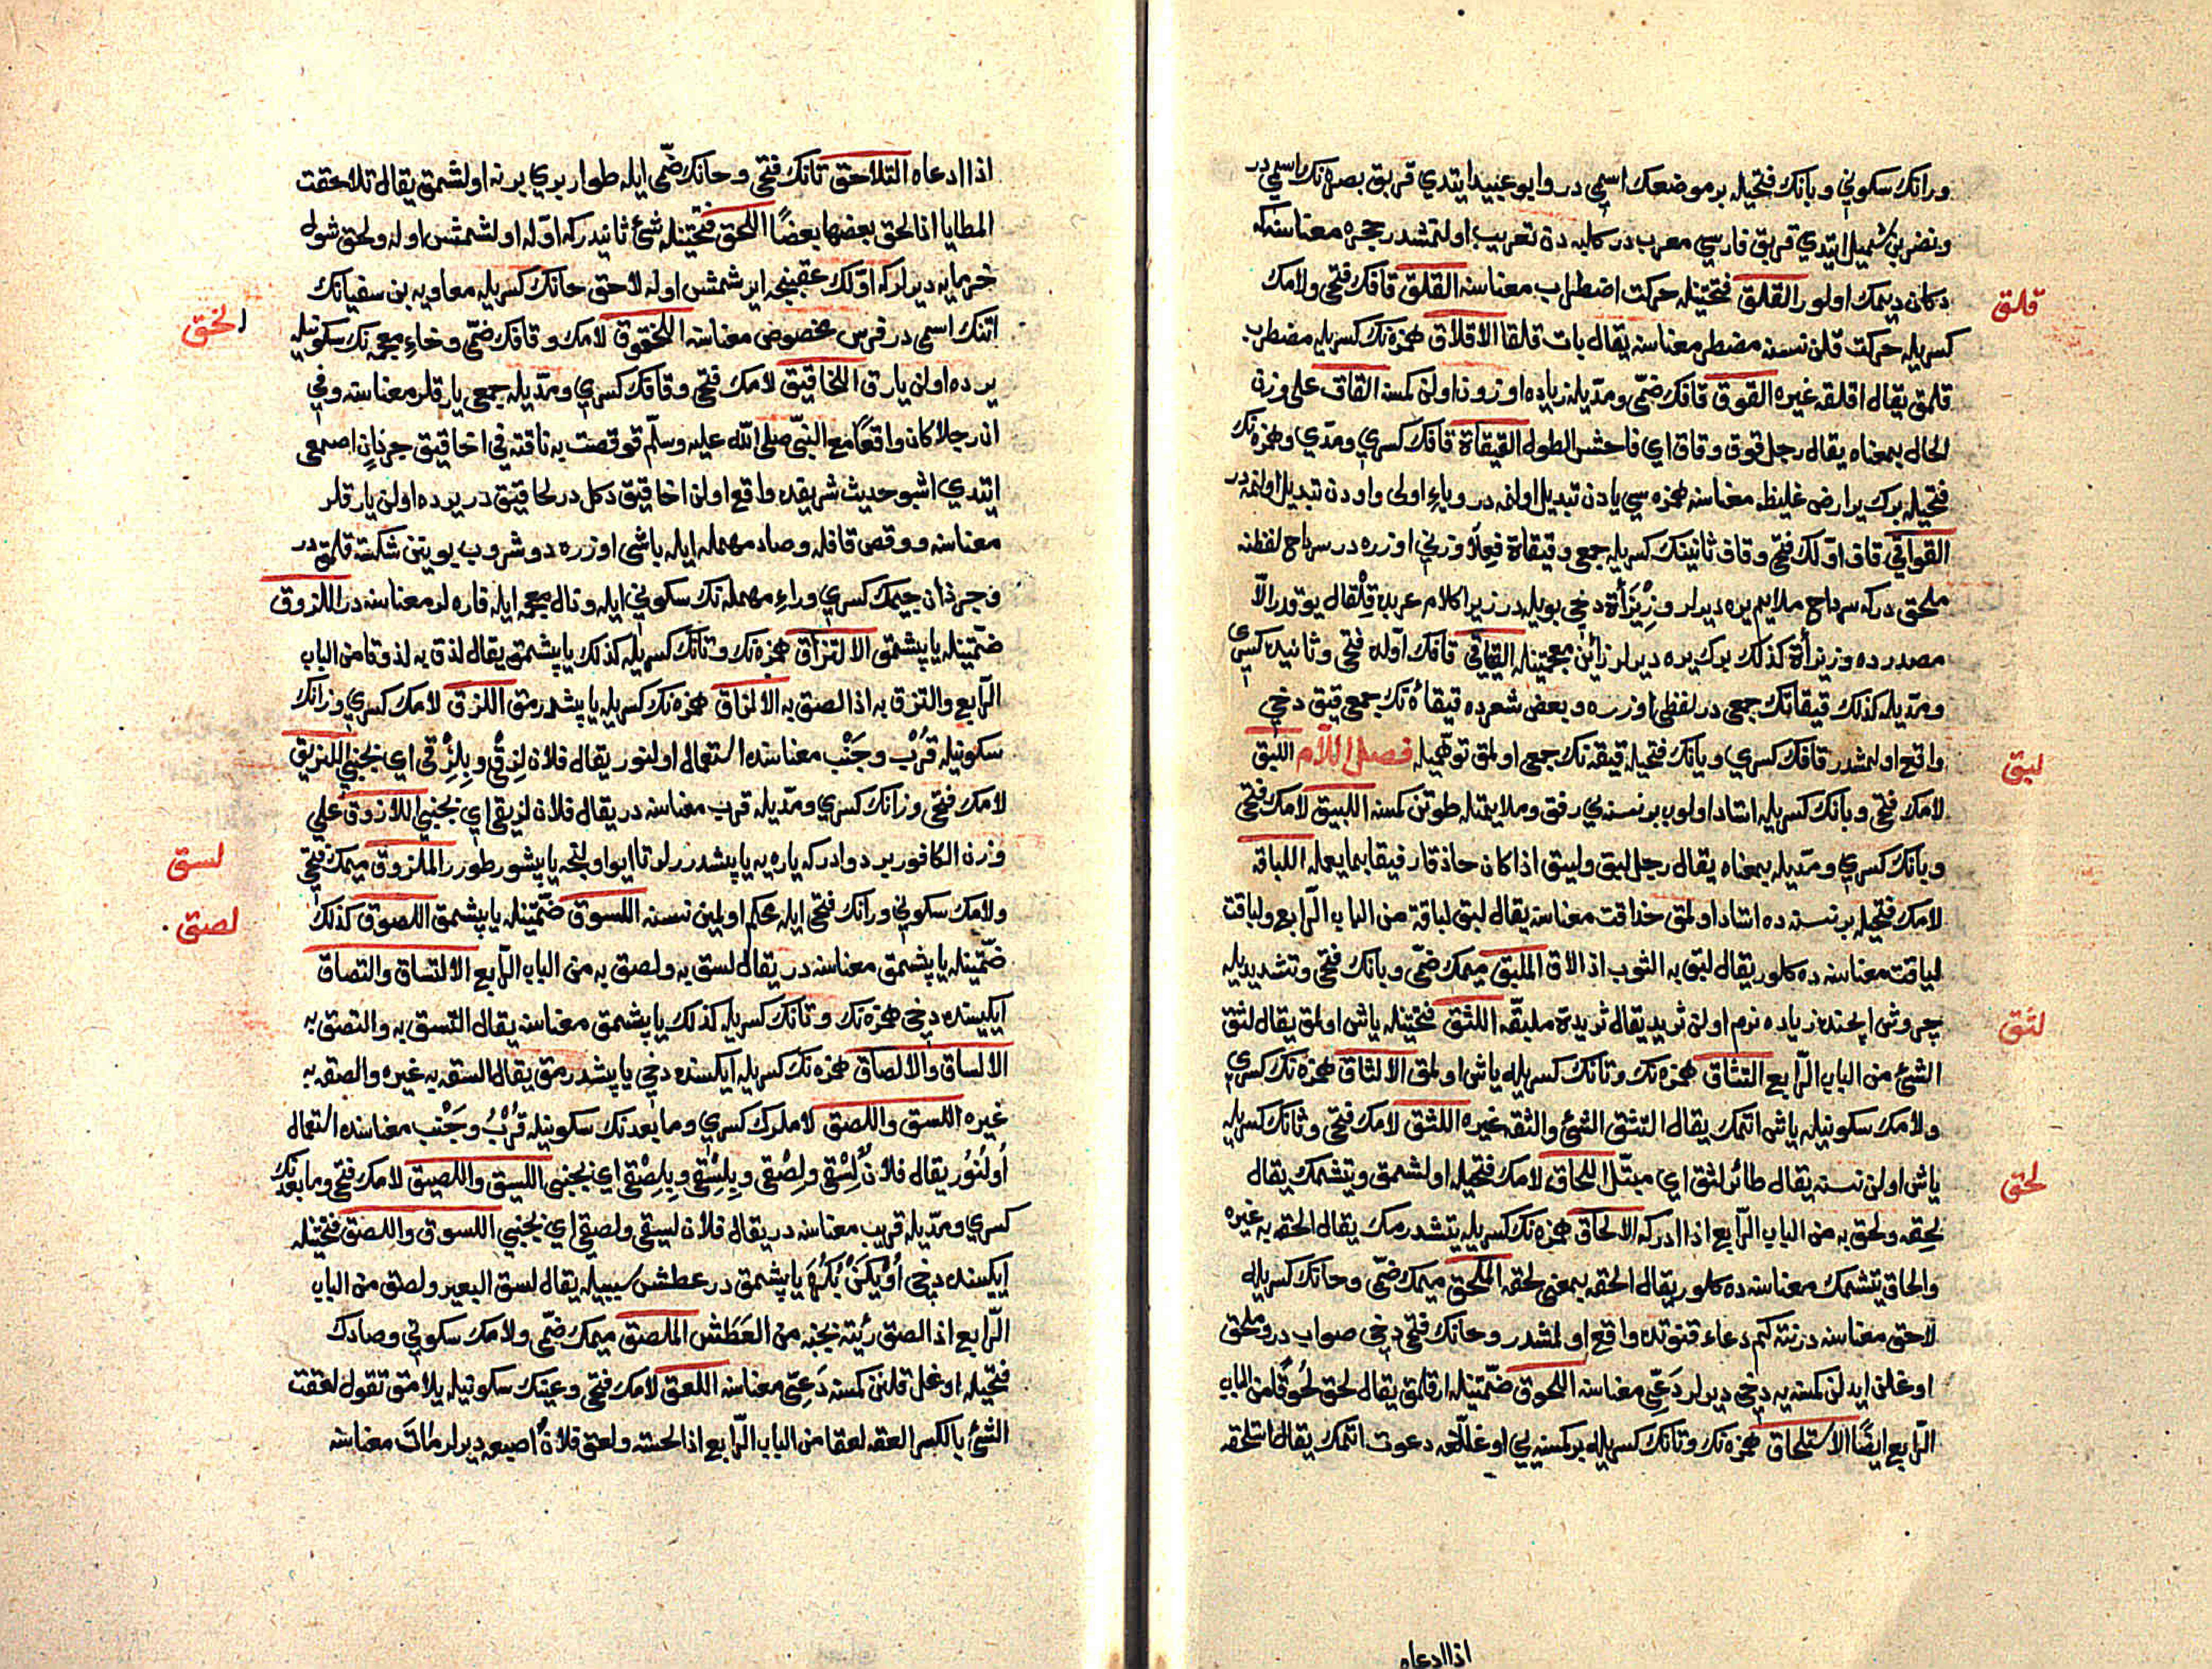 ورانك سكوني وبانك فتحيله بر موضعك اسمي در وابو عبيد ايتدي قربق بصره نك اسمي در
ونضر بن شميل ايتدي قربق فارسي معرب در كلبه دن تعريب اولنمشدر حجره معناسنه كه
دكان ديمك اولور القلق فتحتينله حركت اضطراب معناسنه القلق قافك فتحي ولامك
كسريله حركت قلن نسنه مضطر معناسنه يقال بات قلقا الاقلاق همزه نك كسريله مضطرب
قلمق يقال اقلقه غيره القوق قافك ضمي ومديله زياده اوزون اولن كمسنه القاق على وزن
الحال بمعناه يقال رجل قوق وقاق اي فاحش الطول القيقاة قافك كسري ومدي وهمزه نك
فتحيله برك ير ارض غليظ معناسنه همزه سي يادن تبديل اولنمه در وياء اولى واودن تبديل اولنمه در
القواقي قاف اولك فتحي وقاف ثانينك كسريله جمعي وقيقاة فعلاء وزني اوزره در سرباح لفظنه
ملحق در كه سرباح ملايم يره ديرلر وزيزأة دخي بويله در زيرا كلام عربده فلقال يوقدر الا
مصدرده وزيزأة كذلك برك يره ديرلر زائين معجمتينله القياقي قافك اوله فتحي وثانيده كسري
ومديله كذلك قيقاتك جمعي در لفظي اوزره وبعض شعرده قيقاة نك جمعي قيق دخي
واقع اولمشدر قافك كسري ويانك فتحيله قيقه نك جمعي اولمق توهميله فصل اللام اللبق
لامك فتحي وبانك كسريله استاد اولوب بر نسنه يي رفق وملايمتله طوتن كمسنه اللبيق لامك فتحي
وبانك كسري ومديله بمعناه يقال رجل لبق ولبيق اذا كان حاذقا رفيقا بما يعمله اللباقه
لامك فتحيله بر نسنه ده استاد اولمق حذاقت معناسنه يقال لبق لباقة من الباب الرابع ولباقت
لياقت معناسنه ده كلور يقال لبق به الثوب اذا لاق الملبق ميمك ضمي وبانك فتحي وتشديديله
چروش ايچنده زياده نرم اولن ثريد يقال ثريدة ملبقه اللثق فتحتينله ياش اولمق يقال لثق
الشئ من الباب الرابع التثاق همزه نك وتانك كسريله ياش اولمق الالثاق همزه نك كسري
ولامك سكونيله ياش اتمك يقال التثق الشئ والثقه غيره اللثق لامك فتحي وثانك كسريله
ياش اولن نسنه يقال طائر لثق اي مبتل اللحاق لامك فتحيله اولشمق ويتشمك يقال
لحقه ولحق به من الباب الرابع اذا ادركه الالحاق همزه نك كسريله يتشدرمك يقال الحقه به غيره
والحاق يتشمك معناسنه ده كلور يقال الحقه بمعنى لحقه الملحق ميمك ضمي وحانك كسريله
لاحق معناسنه در نته كم دعاء قنوتده واقع اولمشدر وحانك فتحي دخي صواب در وملحق
اوغلن ايدلن كمسنه يه دخي ديرلر دعي معناسنه اللحوق ضمتينله ارقلمق يقال لحق لحوقا من الباب
الرابع ايضا الاستلحاق همزه نك وتانك كسريله بر كمسنه يي اوغللغه دعوت اتمك يقال استلحقه
اذا ادعاه
قلق
لبق
لثق
لحق
اذا ادعاه التلاحق تانك فتحي وحانك ضمي ايله طوار بري برنه اولشمق يقال تلاحقت
المطايا اذا لحق بعضها بعضا اللحق فتحتينله شئ ثانيدر كه اوله اولشمش اوله ولحق شول
خرمايه ديرلر كه اولك عقبنجه ايرشمش اوله لاحق حانك كسريله معاويه بن سفيانك
اتنك اسمي در فرس مخصوص معناسنه اللخقوق لامك وقافك ضمي وخاء معجمه نك سكونيله
يرده اولن يارق اللخاقيق لامك فتحي وقافك كسري ومديله جمعي يارقلر معناسنه وفي
ان رجلا كان واقفا مع النبي صلى الله عليه وسلم فوقصت به ناقته في اخاقيق جرذان اصمعي
ايتدي اشبو حديث شريفده واقع اولن اخاقيق دكل در لخاقيق در يرده اولن يارقلر
معناسنه ووقص قافله وصاد مهمله ايله باشي اوزره دوشروب بوينن شكست قلمق در
وجرذان جيمك كسري وراء مهمله نك سكوني ايله وذال معجمه ايله فاره لر معناسنه در اللزوق
ضمتينله ياپشمق الالتزاق همزه نك وتانك كسريله كذلك ياپشمق يقال لزق به لزوقا من الباب
الرابع والتزق به اذا لصق به الالزاق همزه نك كسريله ياپشدرمق اللزق لامك كسري وزانك
سكونيله قرب وجنب معناسنده استعمال اولنور يقال فلان لزقي وبلزقي اي بجنبي اللزيق
لامك فتحي وزانك كسري ومديله قرب معناسنه در يقال فلان لزيقي اي بجنبي اللازوق على
وزن الكافور بر دوادر كه ياره يه ياپشدررلر تا ايو اولنجه ياپشور طورر الملزوق ميمك فتحي
ولامك سكوني ورانك فتحي ايله محكم اولمين نسنه اللسوق ضمتينله ياپشمق اللصوق كذلك
ضمتينله ياپشمق معناسنه در يقال لسق به ولصق به من الباب الرابع الالتساق والتصاق
ايكيسنده دخي همزه نك وتانك كسريله كذلك ياپشمق معناسنه يقال التسق به والتصق به
الالساق والالصاق همزه نك كسريله ايكسنده دخي ياپشدرمق يقال السقه به غيره والصقه به
غيره اللسق واللصق لاملرك كسري وما بعدنك سكونيله قرب وجنب معناسنده استعمال
اولنور يقال فلان لسقي ولصقي وبلسقي وبلصقي اي بجنبي اللسيق واللصيق لامك فتحي وما بعدنك
كسري ومديله قريب معناسنه در يقال فلان لسيقي ولصيقي اي بجنبي اللسوق واللصق فتحتينله
ايكيسنده دخي اويكن بكره ياپشمق در عطش سببيله يقال لسق البعير ولصق من الباب
الرابع اذا لصق رئته بجنبه من العطش الملصق ميمك ضمي ولامك سكوني وصادك
فتحيله اوغل قلنن كمسنه دعي معناسنه اللعق لامك فتحي وعينك سكونيله يلامق تقول لعقت
الشئ بالكسر العقه لعقا من الباب الرابع اذا لحسته ولعق فلان اصبعه ديرلر مات معناسنه
لخق
لسق
لصق